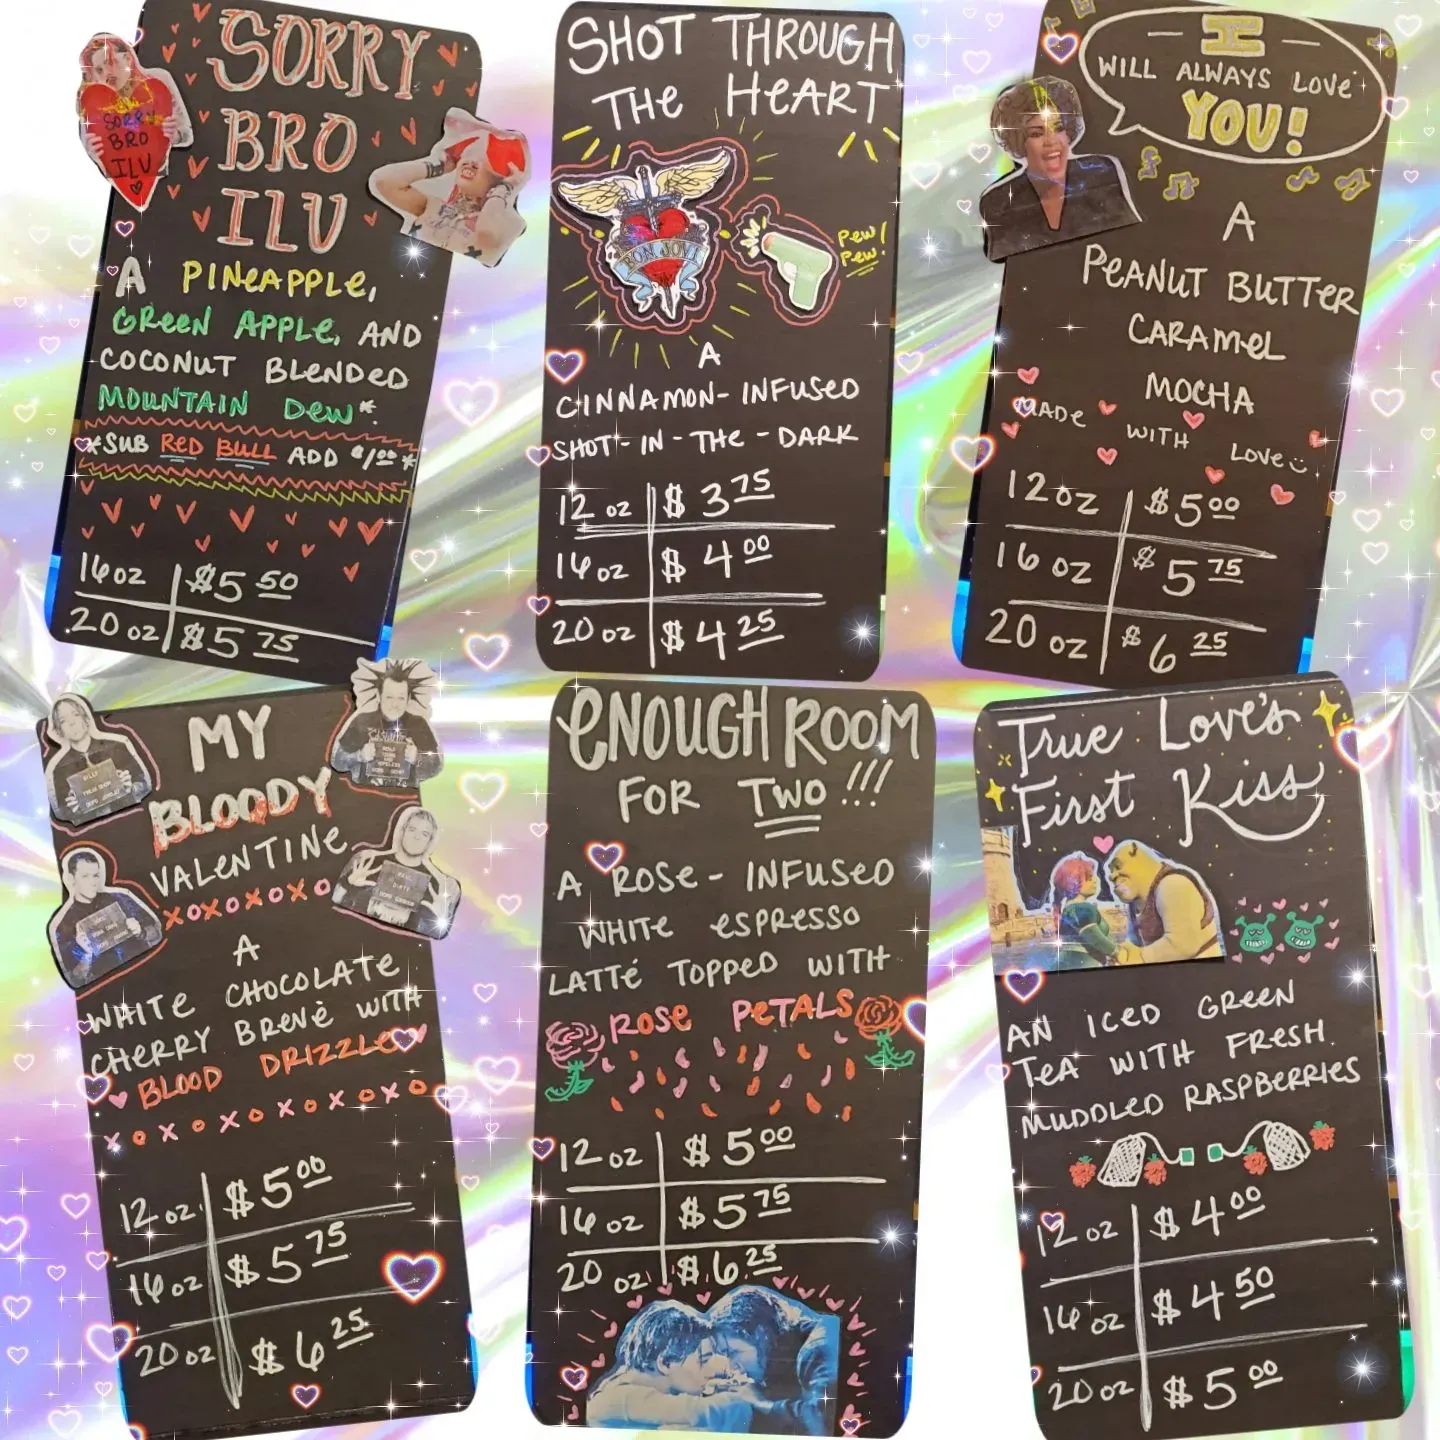 SORRY
BRO
ILU
SORRY
BRO
ILU
A PINEAPPLE,
GREEN APPLE, AND
COCONUT BLENDED
MOUNTAIN DEW*
*SUB RED BULL ADD $1.00*
16 oz $5 50
20 oz $5 75
SHOT THROUGH
THE HEART
BON JOVI
Pew!
Pew!
A
CINNAMON-INFUSED
SHOT-IN-THE-DARK
12 oz $3 75
16 oz $4 00
20 oz $4 25
I
WILL ALWAYS LOVE
YOU!
A
PEANUT BUTTER
CARAMEL
MOCHA
MADE
WITH
LOVE
12 oz $5 00
16 oz $5 75
20 oz $6 25
MY
BLOODY
VALENTINE
XOXOXOXO
A
WHITE CHOCOLATE
CHERRY BREVÈ WITH
BLOOD DRIZZLE
XOXOXOXOXOXO
12 oz. $5 00
16 oz $5 75
20 oz $6 25
ENOUGH ROOM
FOR TWO!!!
A ROSE-INFUSED
WHITE ESPRESSO
LATTÉ TOPPED WITH
ROSE PETALS
12 oz $5 00
16 oz $5 75
20 oz $6 25
True Love's
First Kiss
AN ICED GREEN
TEA WITH FRESH
MUDDLED RASPBERRIES
12 oz $4 00
16 oz $4 50
20 oz $5 00